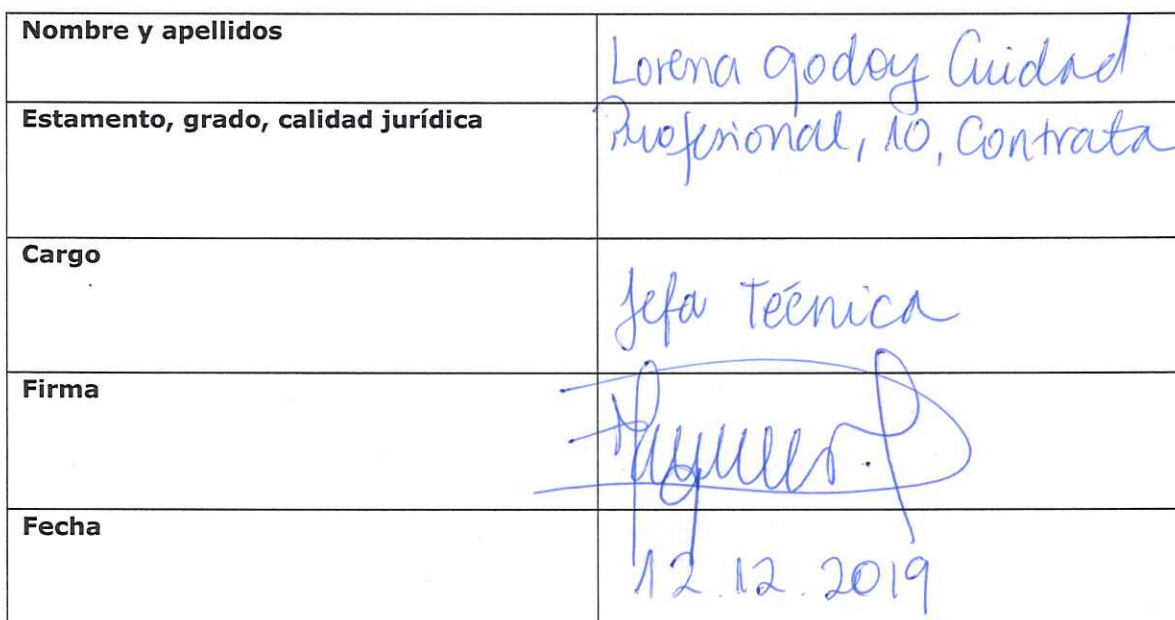 Nombre y apellidos
Lorena Godoy Cuidad
Estamento, grado, calidad jurídica
Profesional, 10, Contrata
Cargo
Jefa Técnica
Firma
Fecha
12.12.2019